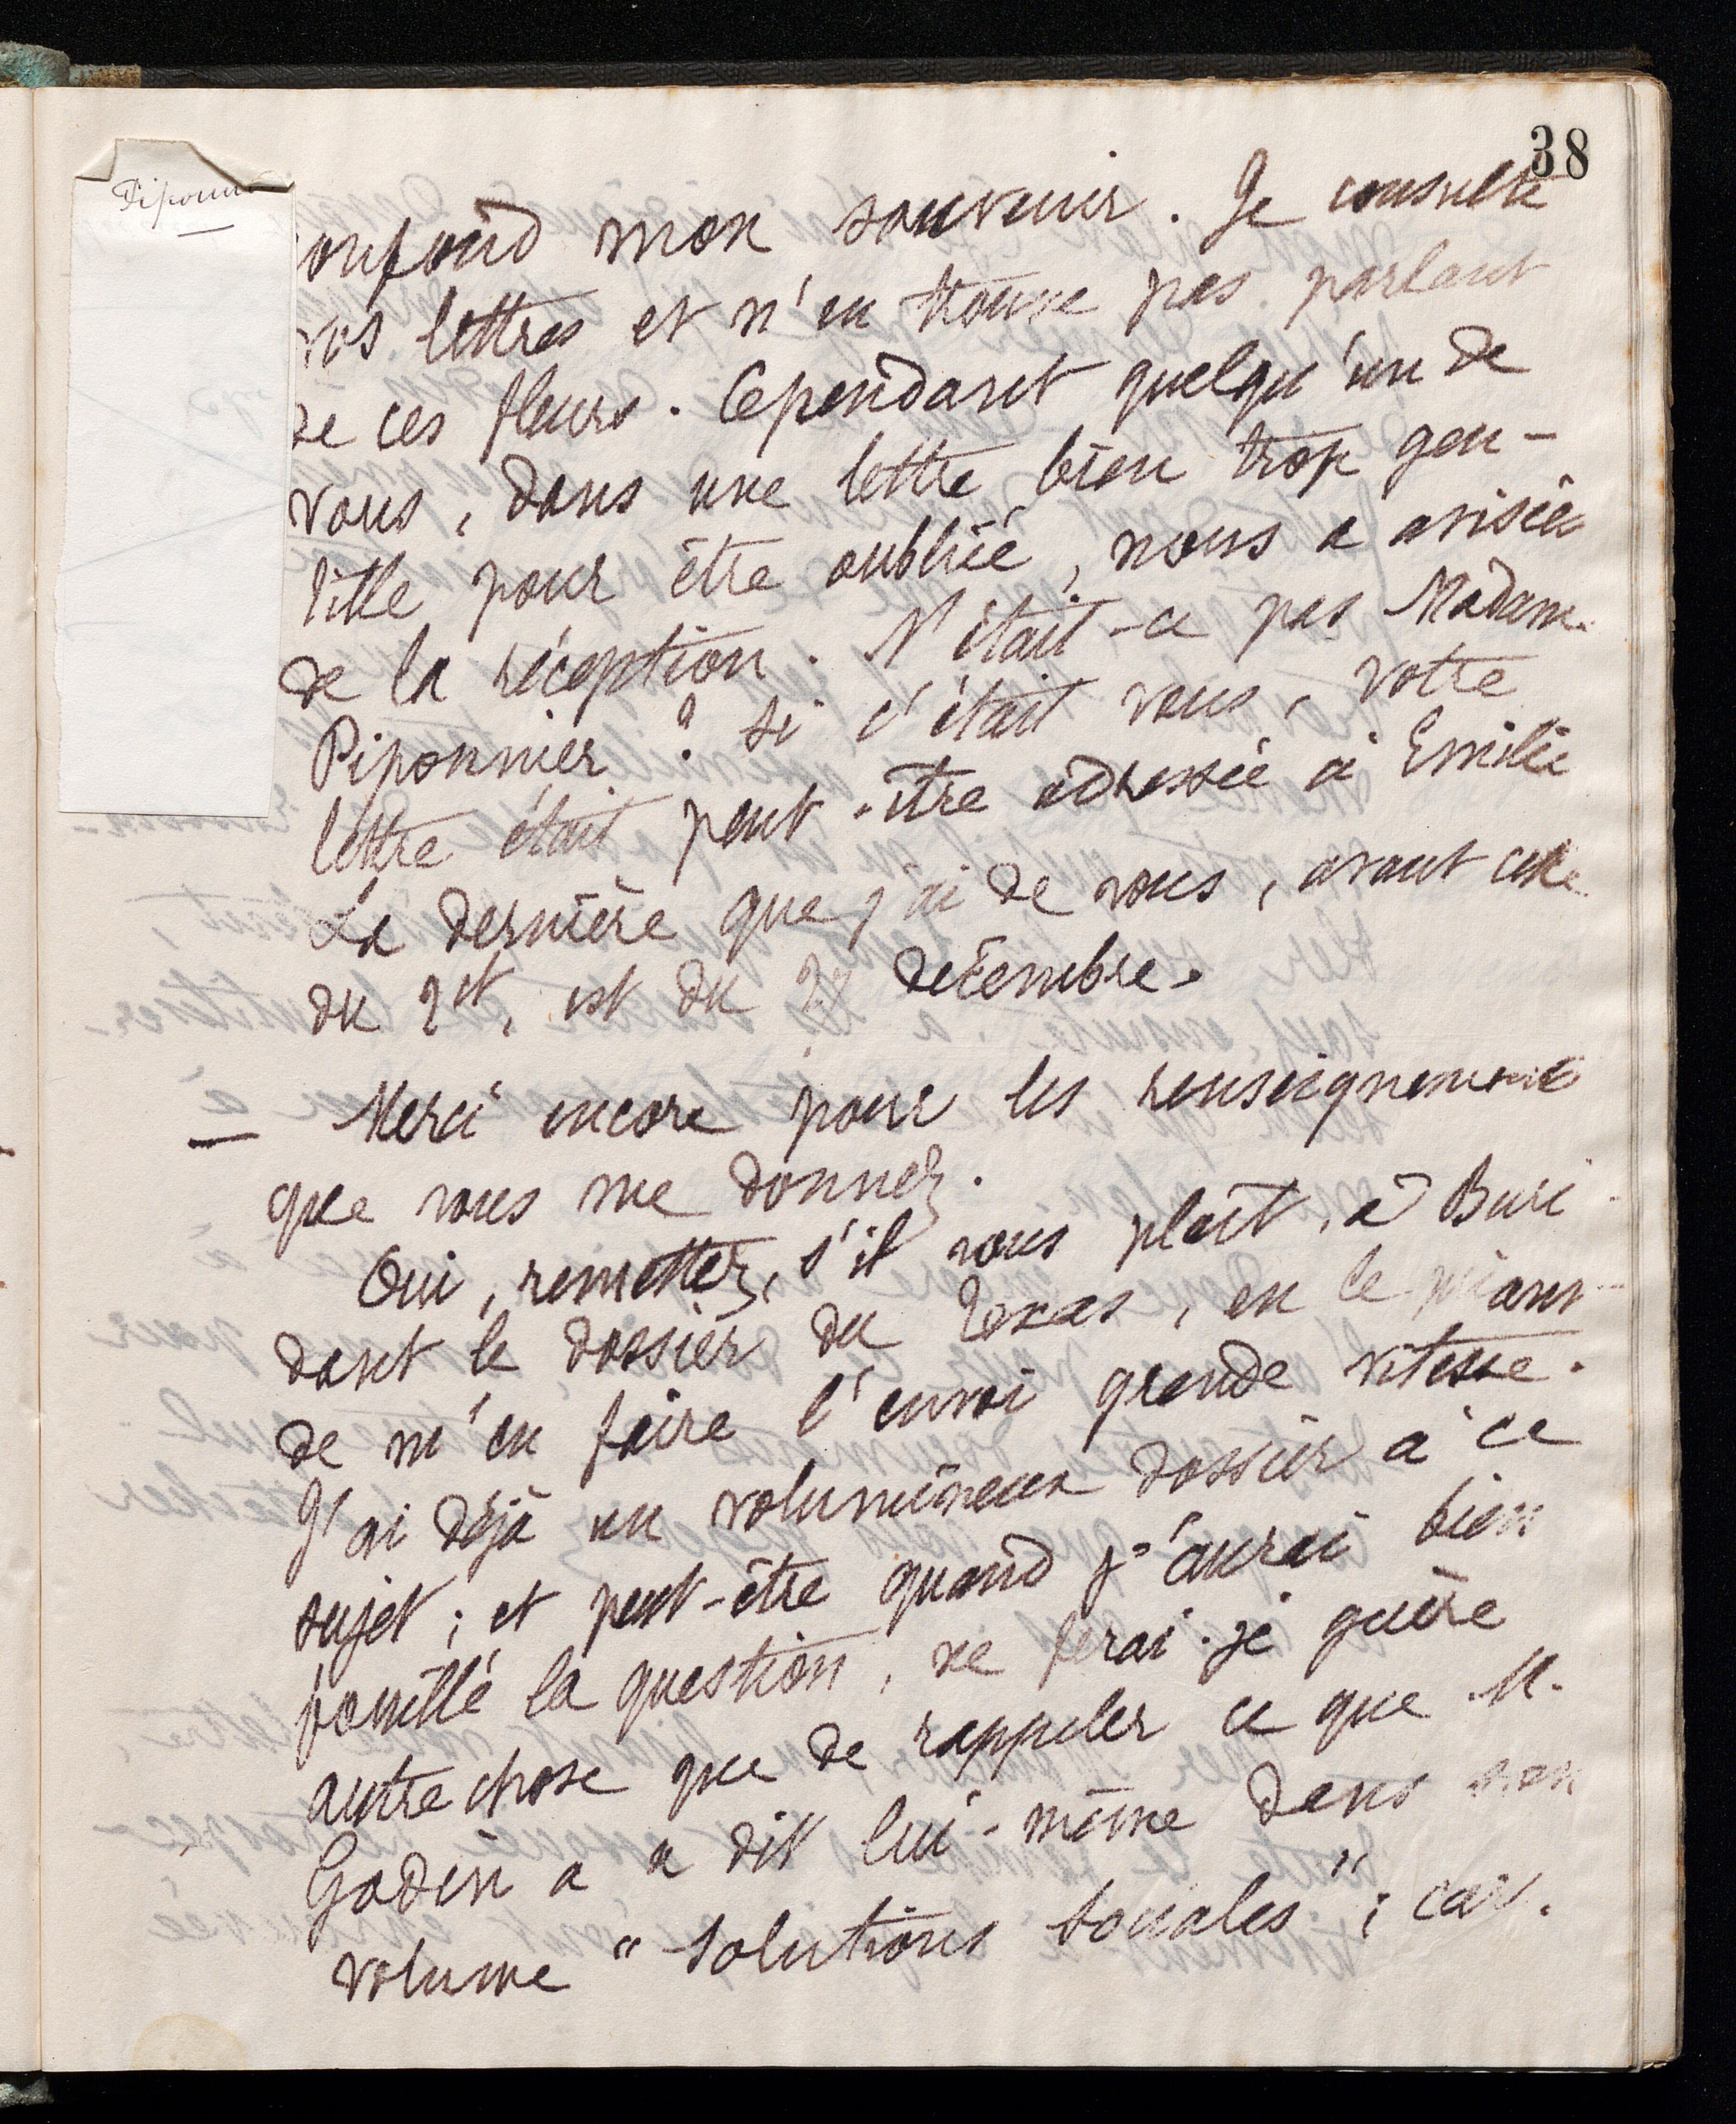 38
Piponni
onfond mon souvenir. Je consulte
vos lettres et n'en trouve pas parlant
de ces fleurs. Cependant quelqu'un de
vous, dans une lettre bien trop gen-
tille pour être oubliée, nous a avisées
de la réception. N'était-ce pas Madame
Piponnier ? Si c'était vous, votre
lettre était peut-être adressée à Emilie
La dernière que j'ai de vous, avant celle
du 2 ct, est du 27 décembre.
— Merci encore pour les renseignements
que vous me donnez.
Oui, remettez, s'il vous plait, à Buri
dant le dossier du Texas, en le priant
de m'en faire l'envoi grande vitesse.
J'ai déjà un volumineux dossier à ce
sujet ; et peut-être quand j'aurai bien
fouillé la question, ne ferai-je guère
autre chose que de rappeler ce que M.
Godin a a dit lui-même dans son
volume "Solutions sociales" ; car.